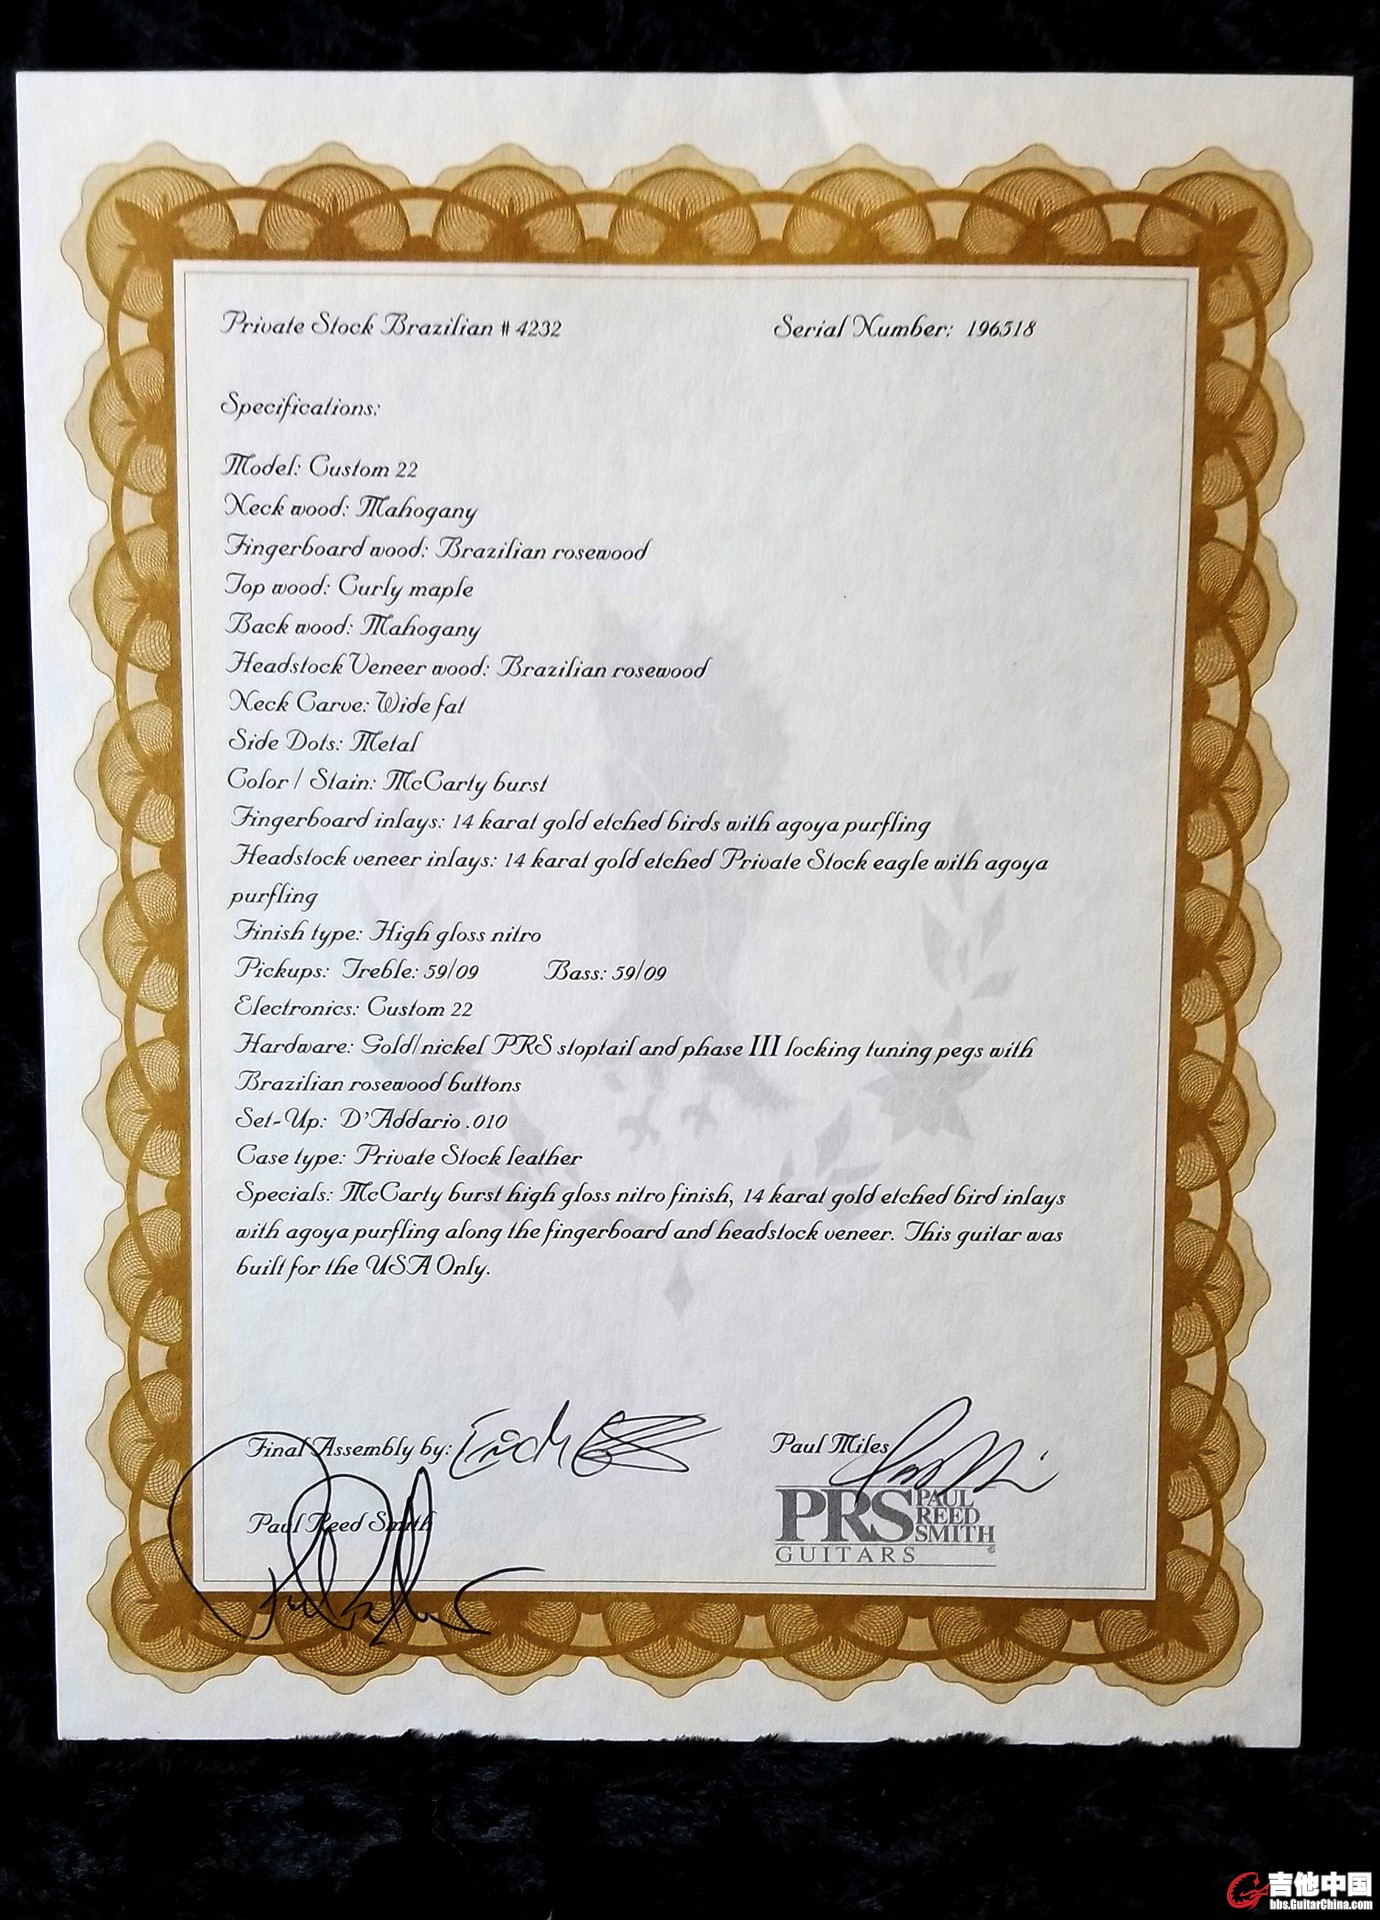 Private Stock Brazilian # 4232
Serial Number: 196518
Specifications:
Model: Custom 22
Neck wood: Mahogany
Fingerboard wood: Brazilian rosewood
Top wood: Curly maple
Back wood: Mahogany
Headstock Veneer wood: Brazilian rosewood
Neck Carve: Wide fat
Side Dots: Metal
Color / Stain: McCarty burst
Fingerboard inlays: 14 karat gold etched birds with agoya purfling
Headstock veneer inlays: 14 karat gold etched Private Stock eagle with agoya
purfling
Finish type: High gloss nitro
Pickups: Treble: 59/09 Bass: 59/09
Electronics: Custom 22
Hardware: Gold/nickel PRS stoptail and phase III locking tuning pegs with
Brazilian rosewood buttons
Set-Up: D'Addario .010
Case type: Private Stock leather
Specials: McCarty burst high gloss nitro finish, 14 karat gold etched bird inlays
with agoya purfling along the fingerboard and headstock veneer. This guitar was
built for the USA Only.
Final Assembly by:
Paul Miles
Paul Reed Smith
PRS PAUL
REED
SMITH
GUITARS
吉他中国
bbs.GuitarChina.com